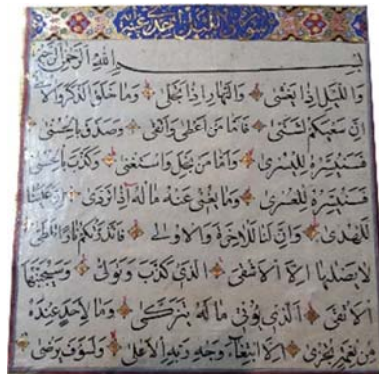 سورة الليل احدى
بِسْمِ اللهِ الرَّحْمٰنِ الرَّحِيمِ
وَاللَّيْلِ اِذَا يَغْشٰى وَالنَّهَارِ اِذَا تَجَلّٰى وَمَا خَلَقَ الذَّكَرَ وَالْا
اِنَّ سَعْيَكُمْ لَشَتّٰى فَاَمَّا مَنْ اَعْطٰى وَاتَّقٰى وَصَدَّقَ بِالْحُسْنٰى
فَسَنُيَسِّرُهُ لِلْيُسْرٰى وَاَمَّا مَنْ بَخِلَ وَاسْتَغْنٰى وَكَذَّبَ بِالْحُسْنٰى
فَسَنُيَسِّرُهُ لِلْعُسْرٰى وَمَا يُغْنِى عَنْهُ مَالُهُ اِذَا تَرَدّٰى اِنَّ عَلَيْنَا
لَلْهُدٰى وَاِنَّ لَنَا لَلْاٰخِرَةَ وَالْاُولٰى فَاَنْذَرْتُكُمْ نَارًا تَلَظّٰى
لَا يَصْلٰيهَا اِلَّا الْاَشْقٰى الَّذِى كَذَّبَ وَتَوَلّٰى وَسَيُجَنَّبُهَا
الْاَتْقٰى اَلَّذِى يُؤْتِى مَالَهُ يَتَزَكّٰى وَمَا لِاَحَدٍ عِنْدَهُ
مِنْ نِعْمَةٍ تُجْزٰى اِلَّا ابْتِغَاءَ وَجْهِ رَبِّهِ الْاَعْلٰى وَلَسَوْفَ يَرْضٰى